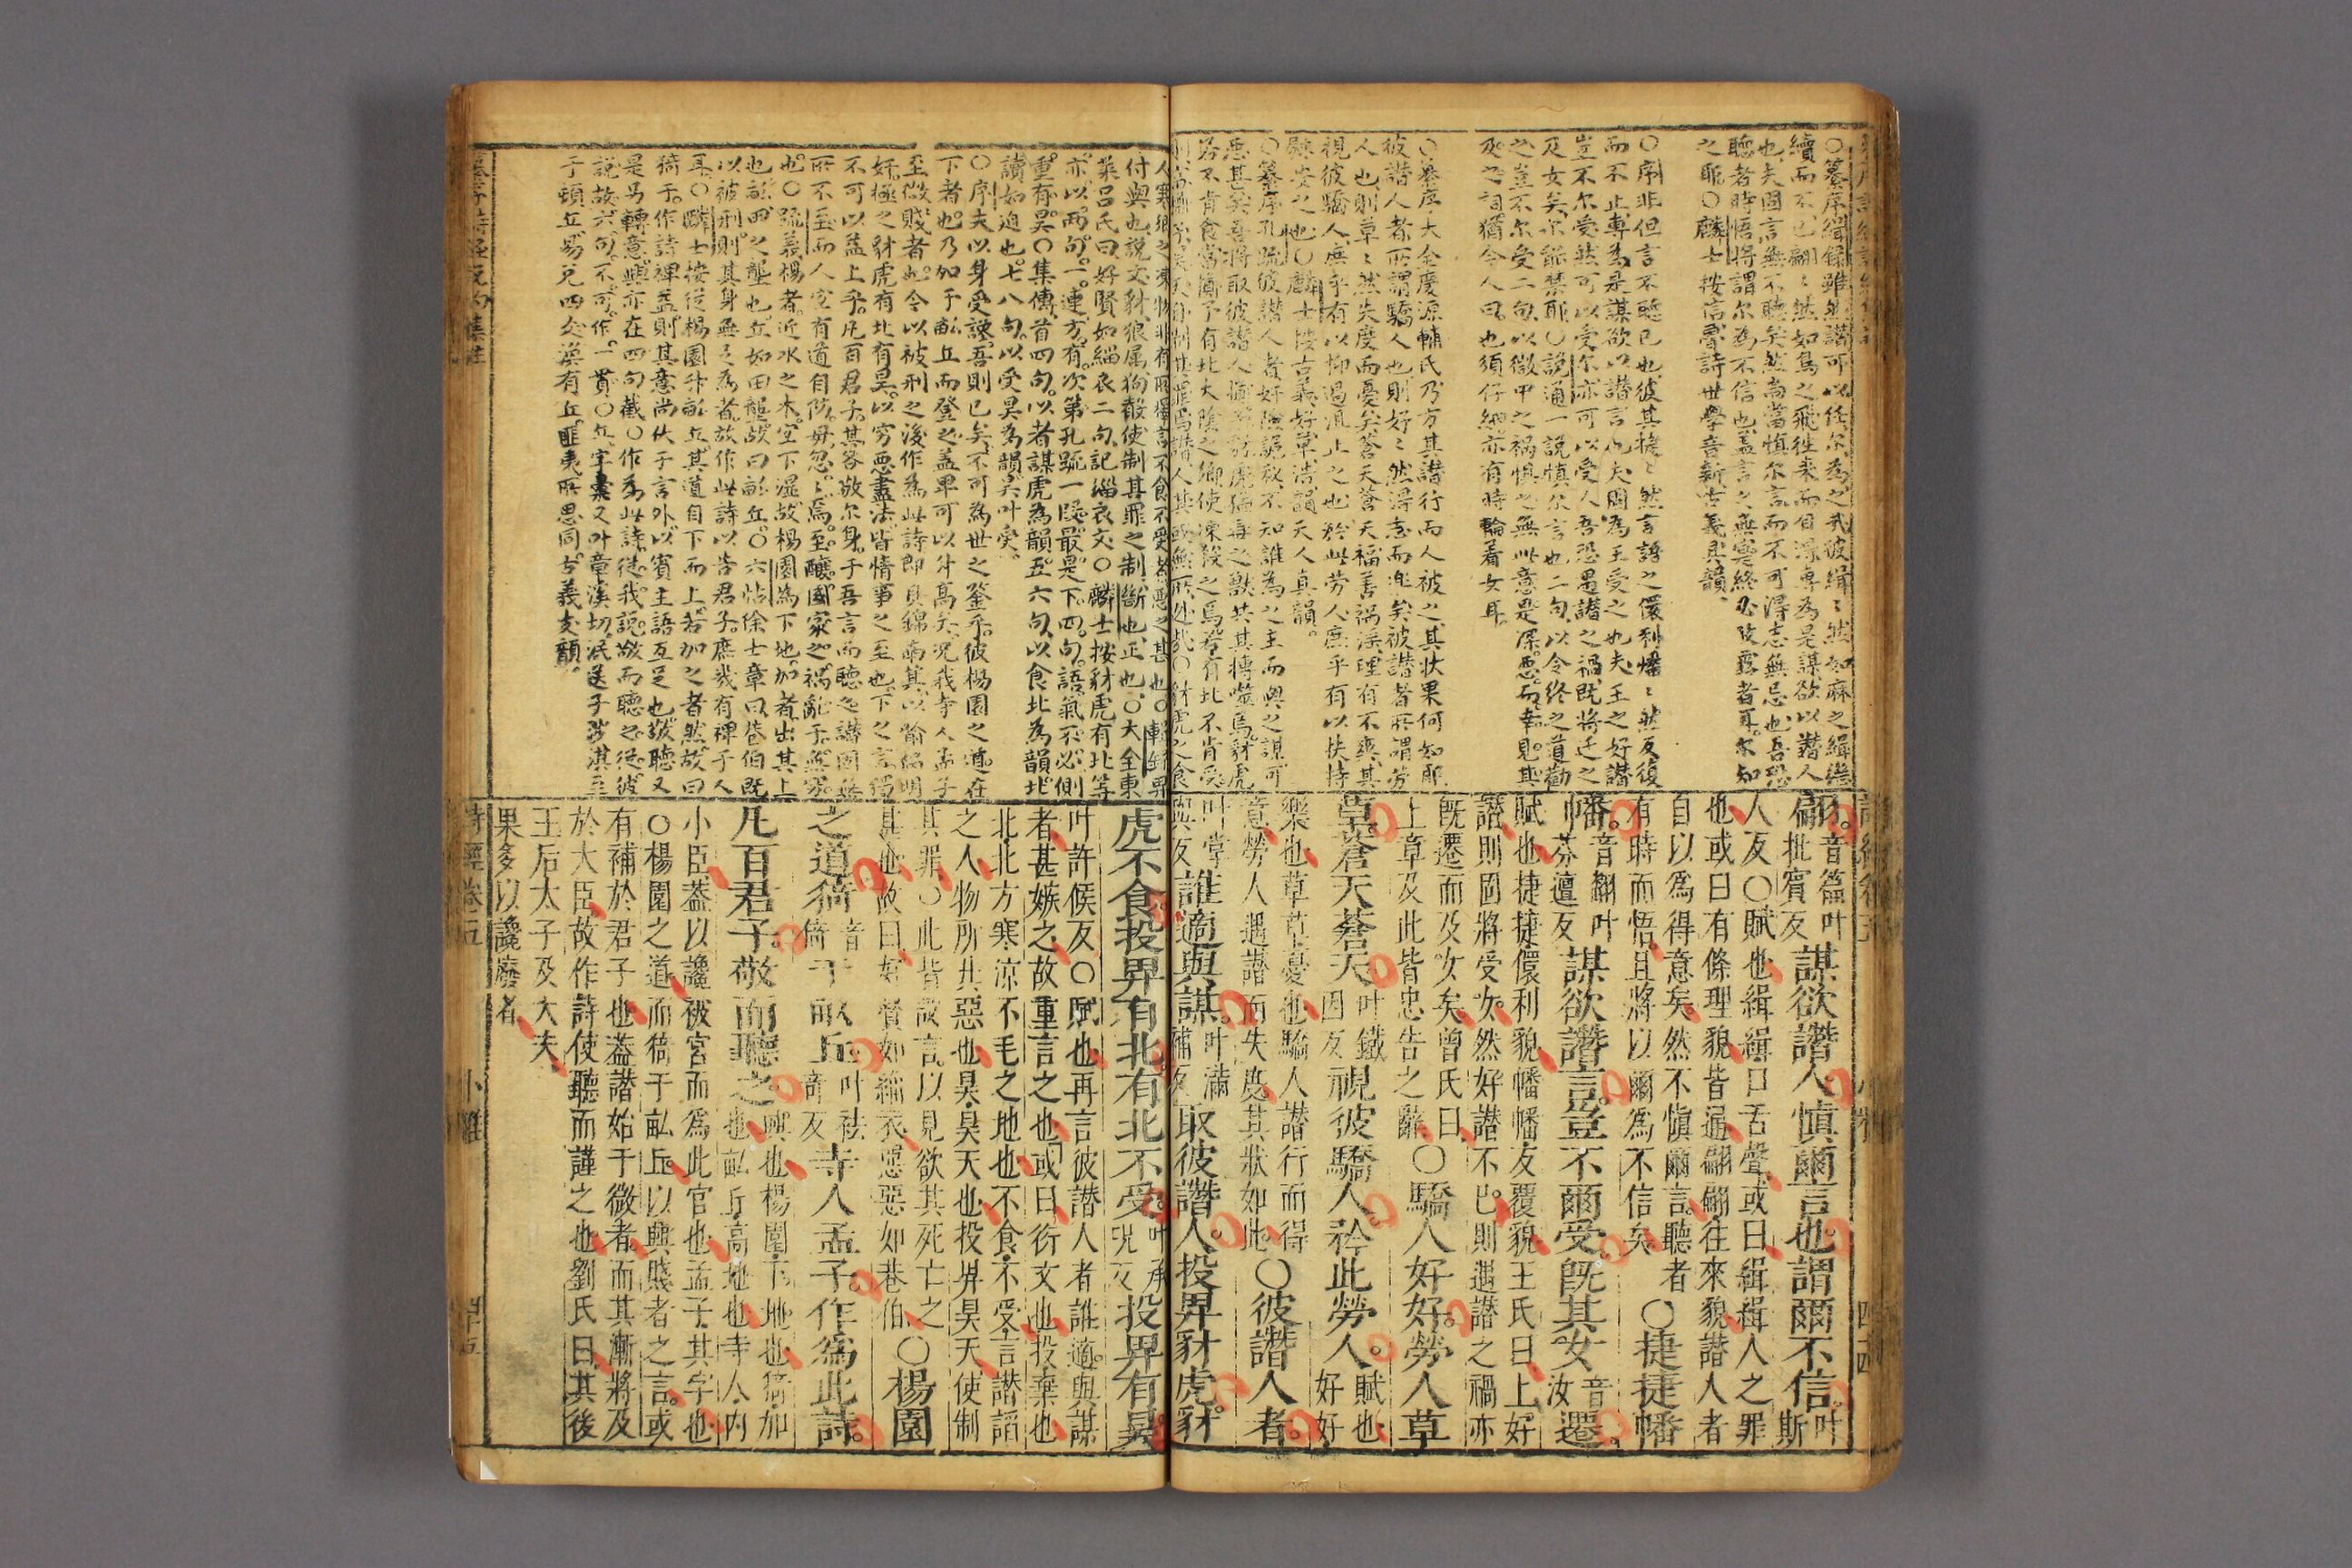 ○纂序緝錄雖然譖可以任尔為之我彼緝〻然如麻之緝緝
續而不已翩〻然如鳥之飛往來而自得專為是謀欲以譖人
也夫固言無不聽矣然尚當慎尔言而不可得志無忌也吾恐
聽者時悟將謂尔為不信也盖言之無實終必敗露者耳尔知
之耶○麟士按信詩世學音新古義真韻
○序非但言不聽已也彼其捷〻然言語之儇利幡〻然反復
而不止專為是謀欲以譖言也夫固為王受之也夫王之好譖
豈不尔受然可以受尔亦可以受人吾恐遇譖之禍既將迁之
及女矣尔能禁耶○説通一説慎尔言也二句以令終之道勸
之豈不尔受二句以微甲之禍惧之無此意是深惡而幸見其
及之詞猶今人曰也須仔細亦有時輪着女耳
○纂序大全慶源輔氏乃方其譖行而人被之其狀果何如耶
彼譖人者所謂驕人也則好〻然得志而樂矣被譖者所謂勞
人也則草〻然失度而憂矣蒼天蒼天福善禍淫理有不爽其
視彼驕人庶乎有以抑遏沮止之也矜此勞人庶乎有以扶持
慰安之也○麟士按古義好草浩韻天人真韻
○纂序孔疏彼譖人者好險詭秘不知誰為之主而與之謀可
惡甚矣吾將取彼譖人擲豺虎猛毒之獸共其摶噬焉豺虎
若不肯食當擲予有北太陰之鄉使凍殺之焉若有北不肯受
翩。音篇叶批賓反謀欲譖人慎爾言也。謂爾不信。叶斯
人反○賦也緝緝口舌聲或曰緝緝人之罪
也或曰有條理貌皆通翩翩往來貌譖人者
自以為得意矣然不愼爾言聽者
有時而悟且將以爾為不信矣○捷捷幡
幡。音翻叶芬邅反謀欲譖言豈不爾受旣其女音汝遷。
賦也捷捷儇利貌幡幡反覆貌王氏曰上好
譖則固將受女然好譖不已則遇譖之禍亦
旣遷而及女矣曾氏曰
上章及此皆忠告之辭○驕人好好。勞人草
草。蒼天蒼天叶鐵因反視彼驕人矜此勞人。賦也好好
樂也草草憂也驕人譖行而得
意勞人遇譖而失度其狀如此○彼譖人者。
叶掌與反誰適與謀。叶滿補反取彼譖人。投畀豺虎。豺
人寒鄉之凍物非有所獨言不食不受者惡之甚也○輯錄畀
付與也説文豺狼属狗聲使制其罪之制斷也正也○大全東
萊呂氏曰好賢如緇衣二句記緇衣文○麟士按豺虎有北等
亦以两句一連方有次第孔疏一段最是下四句語氣不必側
重有昊○集傳首四句以者謀虎為韻五六句以食北為韻北
讀如迫也七八句以受昊為韻昊叶受
○序夫以身受譖吾則已矣不可為世之鉴乎彼楊園之道在
下者也乃加于畝丘而登之盖卑可以升高矣况我寺人孟子
至微賤者也令以被刑之後作為此詩即貝錦南箕以喻倫明
奸極之豺虎有北有昊以穷惡盡法皆情事之至也下之言獨
不可以益上乎凡百君子其各敬尔身于吾言而聽之譖固無
所不至而人宜有道自防毋忽〻焉至釀國家之禍亂于無窮
也○疏義楊者近水之木宜下濕故楊園為下地加者出其上
也畝田之壟也丘如田壟故曰畝丘○六帖徐士章曰巷伯既
以被刑則其身無足為者故作此詩以告君子庶幾有裨于人
耳○麟士按從楊園升畝丘其道自下而上若加之者然故曰
猗于作詩裨益則其意尚伏于言外以賓主語互足也敬聽又
是另轉意興亦在四句截○作為此詩徒我説敬而聽之從彼
説故六句不可作一貫○丘字彙又叶章溪切泯送子涉淇至
于頓丘易兑四久渙有丘匪夷所思同古義支韻
虎不食投畀有北有北不受。叶承呪反投畀有昊。
叶許候反○賦也再言彼譖人者誰適與謀
者甚嫉之故重言之也或曰衍文也投棄也
北北方寒涼不毛之地也不食不受言譖謟
之人物所共惡也昊昊天也投畀昊天使制
其罪○此皆設言以見欲其死亡之
甚也故曰好賢如緇衣惡惡如巷伯○楊園
之道猗音倚于畝丘叶祛奇反寺人孟子。作為此詩。
凡百君子。敬而聽之。興也楊園下地也猗加也畝丘高地也寺人內
小臣葢以讒被宮而為此官也孟子其字也
○楊園之道而猗于畝丘以興賤者之言或
有補於君子也葢譖始于微者而其漸將及
於大臣故作詩使聽而謹之也劉氏曰其後
王后太子及大夫
果多以讒廢者
詩經卷五
小雅